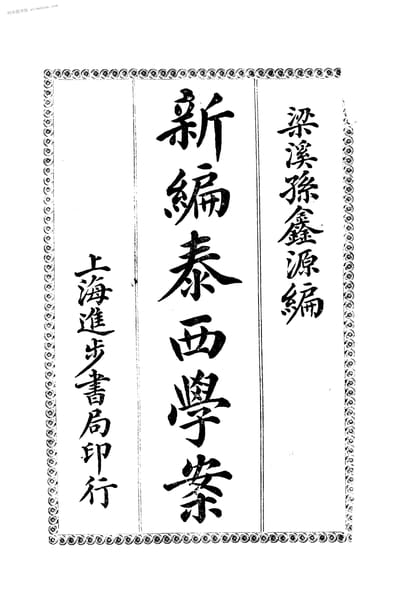 梁溪孫鑫源編
新編泰西學案
上海進步書局印行